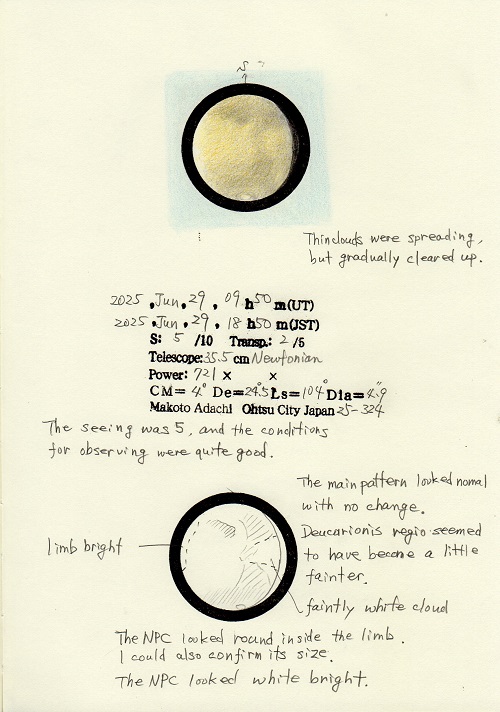 S
Thinclouds were spreading,
but gradually cleared up.
2025, Jun, 29, 09 h 50 m (UT)
2025, Jun, 29, 18 h 50 m (JST)
S: 5 /10 Transp.: 2 /5
Telescope: 35.5 cm Newtonian
Power: 721 × ×
CM= 4° De=24.5° Ls=104° Dia=4.″9
Makoto Adachi Ohtsu City Japan 25-324
The seeing was 5, and the conditions
for observing were quite good.
The main pattern looked nomal
with no change.
Deucarionis regio seemed
to have become a little
fainter.
limb bright
faintly white cloud
The NPC looked round inside the limb.
I could also confirm its size.
The NPC looked white bright.